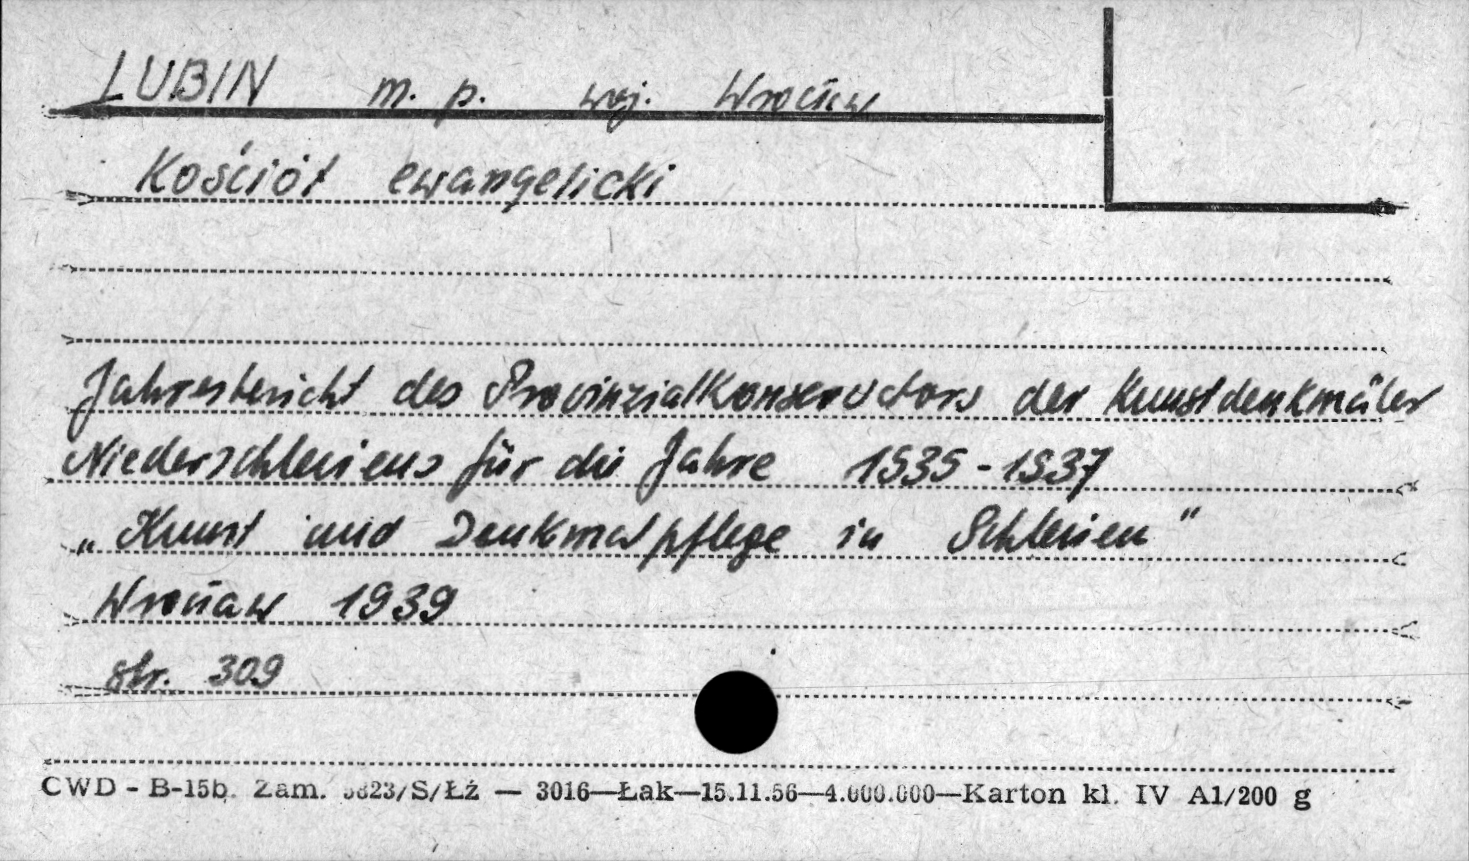 LUBIN m. p. woj. Wrocław
Kościół ewangelicki
Jahresbericht des Provinzialkonservators der Kunstdenkmäler
Niederschlesiens für die Jahre 1935-1937
„Kunst und Denkmalpflege in Schlesien"
Wrocław 1939
str. 309
CWD - B-15b. Zam. 5823/S/Łź — 3016—Łak—15.11.56—4.000.000—Karton kl. IV A1/200 g